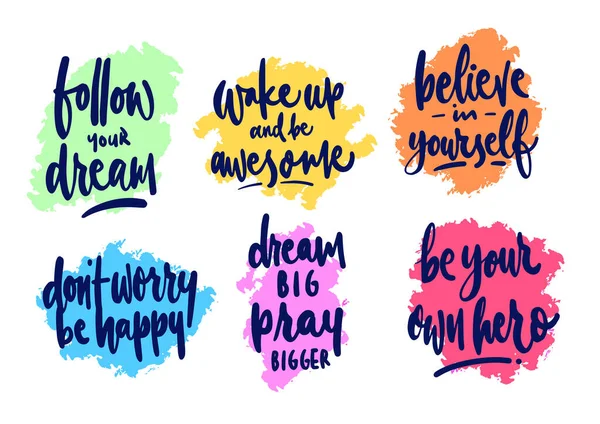 follow
your
dream
wake up
and be
awesome
believe
in
yourself
don't worry
be happy
dream
BIG
pray
BIGGER
be your
own hero